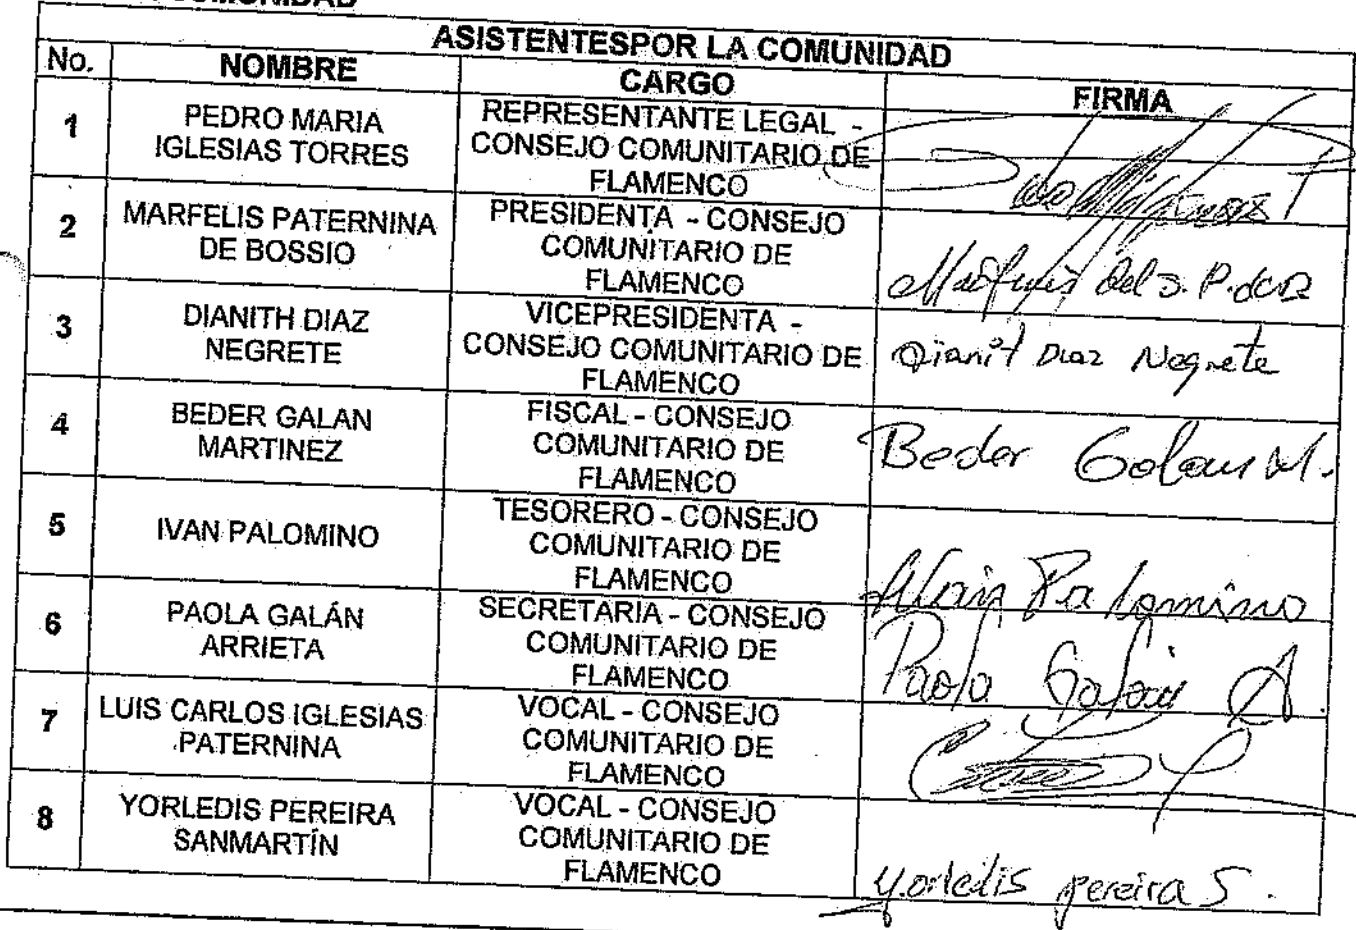 COMUNIDAD
ASISTENTESPOR LA COMUNIDAD
No. NOMBRE CARGO FIRMA
1 PEDRO MARIA IGLESIAS TORRES REPRESENTANTE LEGAL - CONSEJO COMUNITARIO DE FLAMENCO
2 MARFELIS PATERNINA DE BOSSIO PRESIDENTA - CONSEJO COMUNITARIO DE FLAMENCO
3 DIANITH DIAZ NEGRETE VICEPRESIDENTA - CONSEJO COMUNITARIO DE FLAMENCO Dianit Diaz Negrete
4 BEDER GALAN MARTINEZ FISCAL - CONSEJO COMUNITARIO DE FLAMENCO Beder Galan M.
5 IVAN PALOMINO TESORERO - CONSEJO COMUNITARIO DE FLAMENCO Palomino
6 PAOLA GALÁN ARRIETA SECRETARIA - CONSEJO COMUNITARIO DE FLAMENCO Paola Galan A.
7 LUIS CARLOS IGLESIAS PATERNINA VOCAL - CONSEJO COMUNITARIO DE FLAMENCO
8 YORLEDIS PEREIRA SANMARTÍN VOCAL - CONSEJO COMUNITARIO DE FLAMENCO Yorledis pereira S.